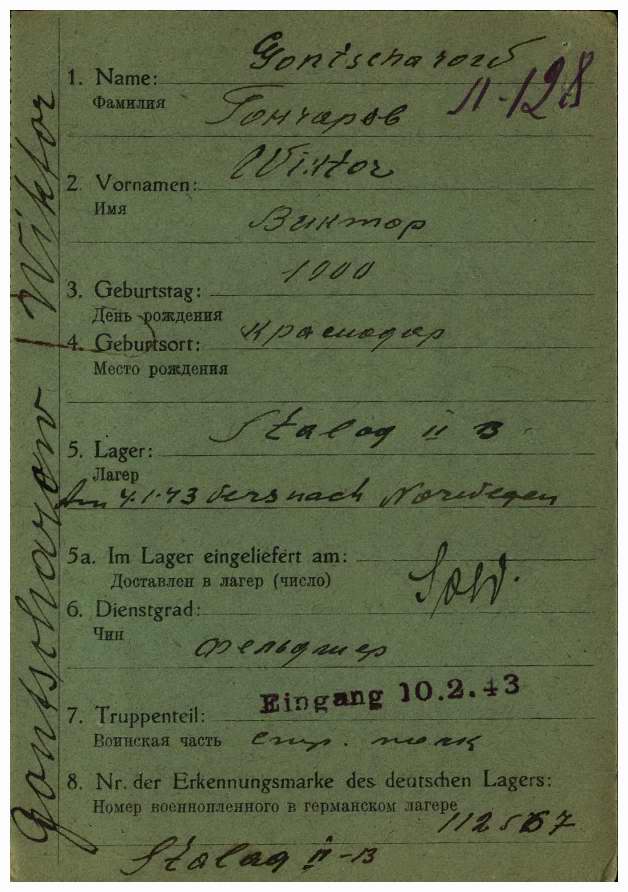 Gontscharow / Wiktor
Gontscharow
1. Name:
Фамилия
Л-128
Гончаров
Wiktor
2. Vornamen:
Имя
Виктор
1900
3. Geburtstag:
День рождения
4. Geburtsort: Краснодар
Место рождения
Stalag II B
5. Lager:
Лагер
Am 4.1.43 vers nach Norwegen
5a. Im Lager eingeliefert am:
Доставлен в лагер (число)
Sold.
6. Dienstgrad:
Чин
Фельдшер
Eingang 10.2.43
7. Truppenteil:
Воинская часть стр. полк
8. Nr. der Erkennungsmarke des deutschen Lagers:
Номер военнопленного в германском лагере
Stalag II-B